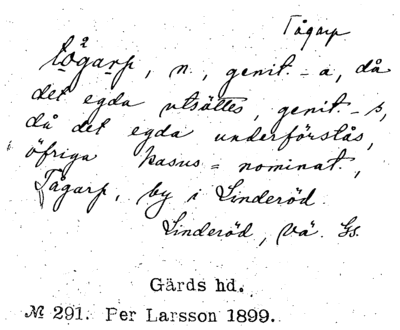 Tågarp
tǫ̊garp, n., genit. -a, då
det egda utsättes, genit. -s,
då det egda underförstås,
öfriga kasus = nominat.,
Tågarp, by i Linderöd.
Linderöd, Vä. Gs.
Gärds hd.
№ 291. Per Larsson 1899.